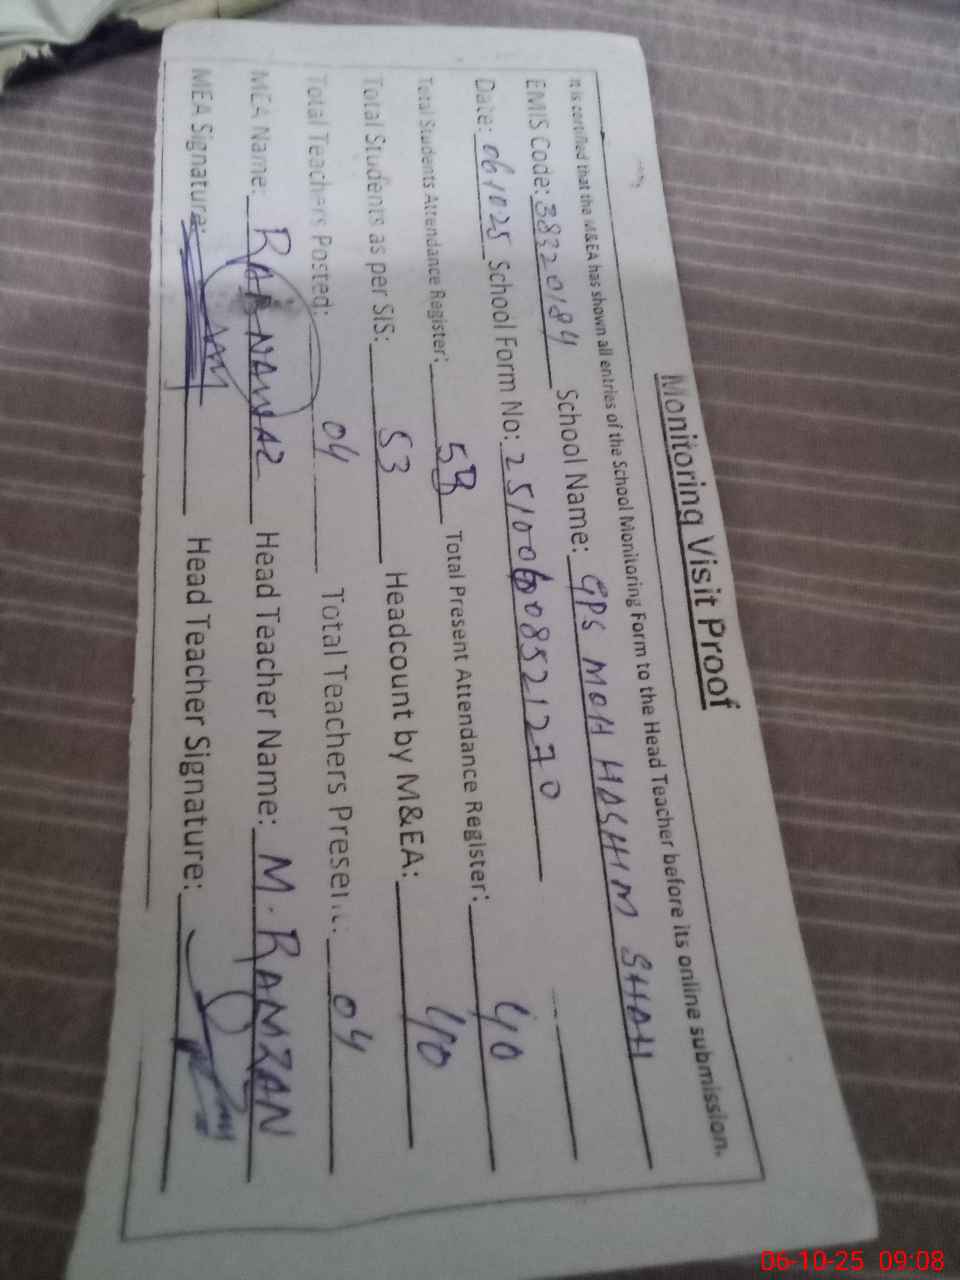 Monitoring Visit Proof
It is certified that the M&EA has shown all entries of the School Monitoring Form to the Head Teacher before its online submission.
EMIS Code: 38320184 School Name: GPS MOH HASHIM SHAH
Date: 061025 School Form No:
Total Students Attendance Register: Total Present Attendance Register: 40
Total Students as per SIS: 53 Headcount by M&EA: 40
Total Teachers Posted: 04 Total Teachers Present: 04
MEA Name: RAB NAWAZ Head Teacher Name: M. RAMZAN
MEA Signature: Head Teacher Signature:
06-10-25 09:08